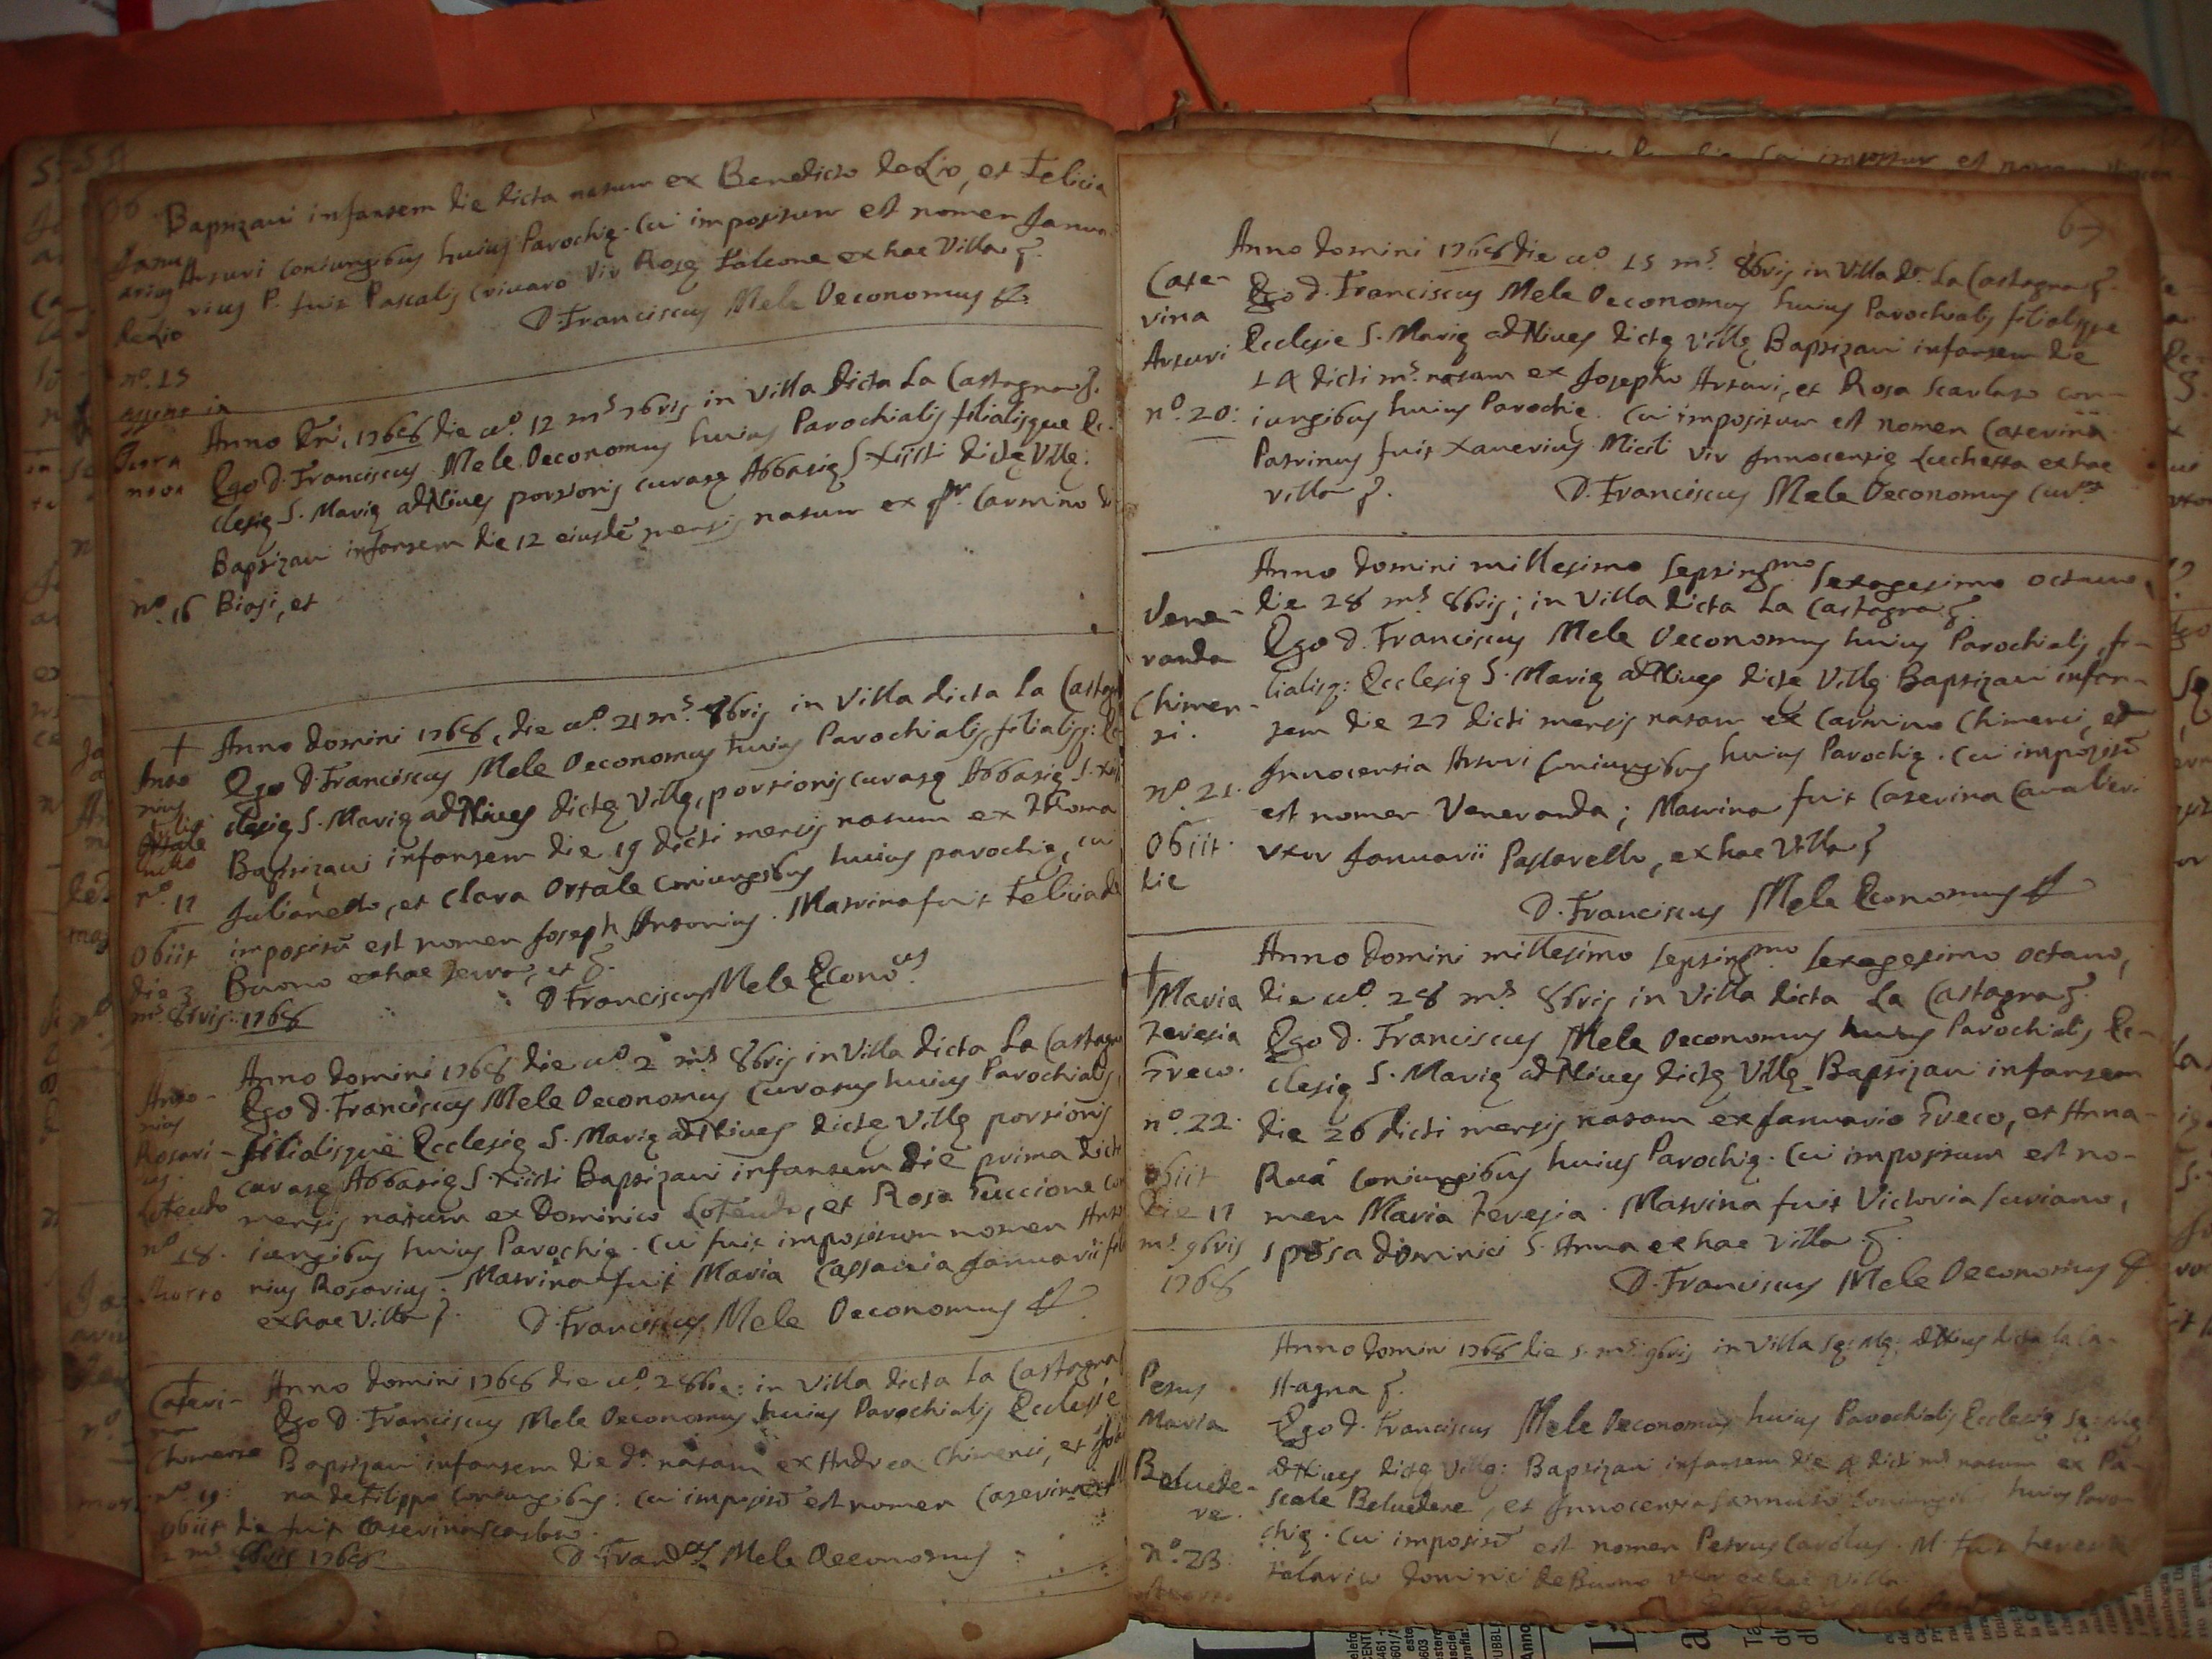 66
Baptizavi infantem die dicta natum ex Benedicto de Lio, et Felicia
Arturi coniungibus huius Parochię. Cui impositum est nomen Janua
rius P. fuit Pascalis Crivaro vir Rosę Falcone ex hac Villa
D. Franciscus Mele Oeconomus
Janu
arius
de Lio
nº. 15
Anno Dni, 1768 die uº. 12 ms 7bris in Villa dicta La Castagna
Ego D. Franciscus Mele Oeconomus huius Parochialis filialisque Ec
clesię S. Marię ad Nives portionis curatę Abbatię S. Xisti dictę Villę.
Baptizavi infantem die 12 eiusdē mensis natum ex Carmino di
Biasi, et
nº. 16
Anno Domini 1768, die uº. 21 ms. 7bris in Villa dicta La Castagn
Ego D. Franciscus Mele Oeconomus huius Parochialis, filialisq: Ec
clesię S. Marię ad Nives dictę Villę, portionis curatę Abbatię S. Xisti
Baptizavi infantem die 19 dicti mensis natum ex Thoma
Julianello, et Clara Ortale coniungibus huius parochię, cui
impositū est nomen Joseph Antonius. Matrina fuit Felicia de
Buono ex hac
D Franciscus Mele Econo
Anto
nius
nº. 17
Obiit
die 3
ms. 8bris. 1768
Anno Domini 1768 die uº. 2 ms 8bris in Villa dicta La Castagn
Ego D. Franciscus Mele Oeconomus Curatus huius Parochialis,
filialisque Ecclesię S. Marię ad Nives dictę Villę portionis
curatę Abbatię S. Xisti Baptizavi infantem die prima dicti
mensis natum ex Dominico Lotendo, et Rosa Guccione con
iungibus huius Parochię. Cui fuit impositum nomen Anto
nius Rosarius. Matrina fuit Maria Januarii
ex hac Villa
D. Franciscus Mele Oeconomus
Anto-
nius
Rosari-
us.
Lotendo
nº. 18.
Anno Domini 1768 die uº. 2 8bris: in Villa dicta La Castagna
Ego D. Franciscus Mele Oeconomus huius Parochialis Ecclesię
Baptizavi infantem die dª. natam ex Andrea Chimenci, et
na de Filippo coniungibus: cui impositū est nomen Caterina et
fuit Caterina Scarlato.
Mele Oeconomus
Cateri-
na
nº. 19:
Obiit die
2 ms 8bris 1768
67
Anno Domini 1768 die uº. 15 ms. 8bris in Villa dª. La Castagna
Ego D. Franciscus Mele Oeconomus huius Parochialis filialisque
Ecclesię S. Marię ad Nives dictę Villę Baptizavi infantem die
14 dicti ms. natam ex Josepho Arturi, et Rosa Scarlato con-
iungibus huius Parochię. Cui impositum est nomen Caterina
Patrinus fuit Xaverius Miceli vir Innocentię Luchetta ex hac
villa
D. Franciscus Mele Oeconomus
Cate-
rina
Arturi
nº. 20:
Anno Domini millesimo septingmo. sexagesimo octavo,
die 28 ms 8bris; in Villa dicta La Castagna
Ego D. Franciscus Mele Oeconomus huius Parochialis, fi-
lialisq: Ecclesię S. Marię ad Nives dictę Villę Baptizavi infan-
tem die 27 dicti mensis natam ex Carmino Chimenci, et
Innocentia Arturi coniungibus huius Parochię. Cui impositū
est nomen Veneranda; Matrina fuit Caterina Cavalieri
uxor Januarii Pastorello, ex hac Villa
D. Franciscus Mele Economus
Vene-
randa
Chimen-
nº. 21.
Obiit.
die
Anno Domini millesimo septingmo. sexagesimo octavo,
die uº. 28 ms 8bris in Villa dicta La Castagna
Ego D. Franciscus Mele Oeconomus huius Parochialis Ec-
clesię S. Marię ad Nives dictę Villę Baptizavi infantem
die 26 dicti mensis natam ex Januario Greco, et Anna-
Rua coniungibus huius Parochię. Cui impositum est no-
men Maria Teresia. Matrina fuit Victoria Suriano,
sposa Dominici S. Anna ex hac Villa
D. Franciscus Mele Oeconomus
Maria
Teresia
Greco.
nº. 22.
obiit
die 17
ms. 9bris
1768
Anno Domini 1768 die 5 ms. 9bris in Villa Sę: Mę: ad Nives dicta la Ca-
stagna
Ego D. Franciscus Mele Oeconomus huius Parochialis Ecclesię
ad Nives dictę Villę: Baptizavi infantem die 4 dicti ms natum ex Pa-
scale Belvedere, et Innocentia huius Paro-
chię. Cui impositū est nomen Petrus Carolus. M. fuit Teresia
Talarico Dominici de Buono ex hac Villa
Petrus
Maria
Belvede-
re.
nº. 23.